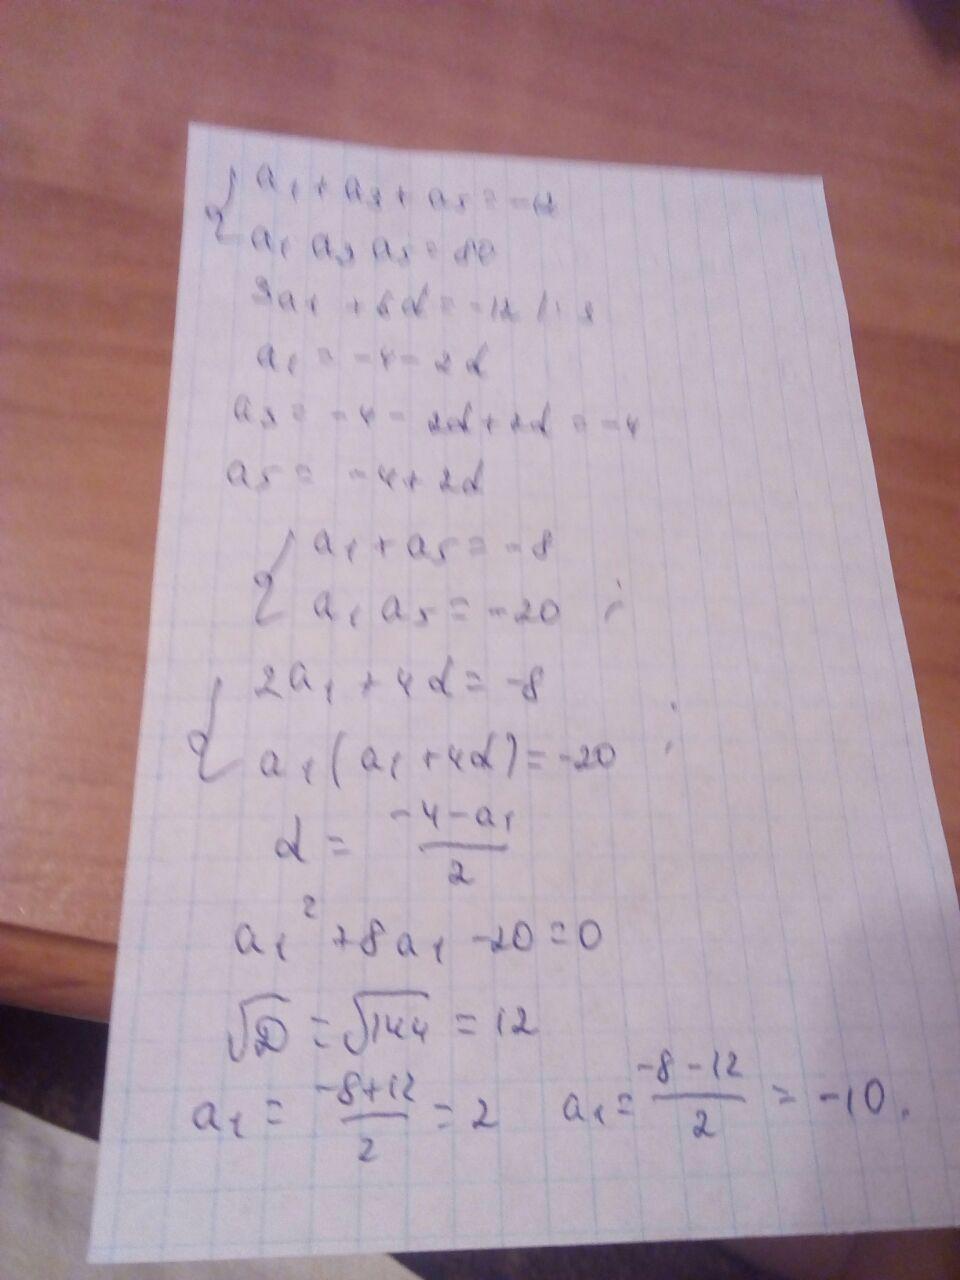 { a₁ + a₃ + a₅ = -12
a₁ a₃ a₅ = 80
3a₁ + 6d = -12 |: 3
a₁ = -4 - 2d
a₃ = -4 - 2d + 2d = -4
a₅ = -4 + 2d
{ a₁ + a₅ = -8
a₁ a₅ = -20 ;
{ 2a₁ + 4d = -8
a₁(a₁ + 4d) = -20 ;
d = (-4 - a₁)/2
a₁² + 8a₁ - 20 = 0
√D = √144 = 12
a₁ = (-8+12)/2 = 2 a₁ = (-8-12)/2 = -10.